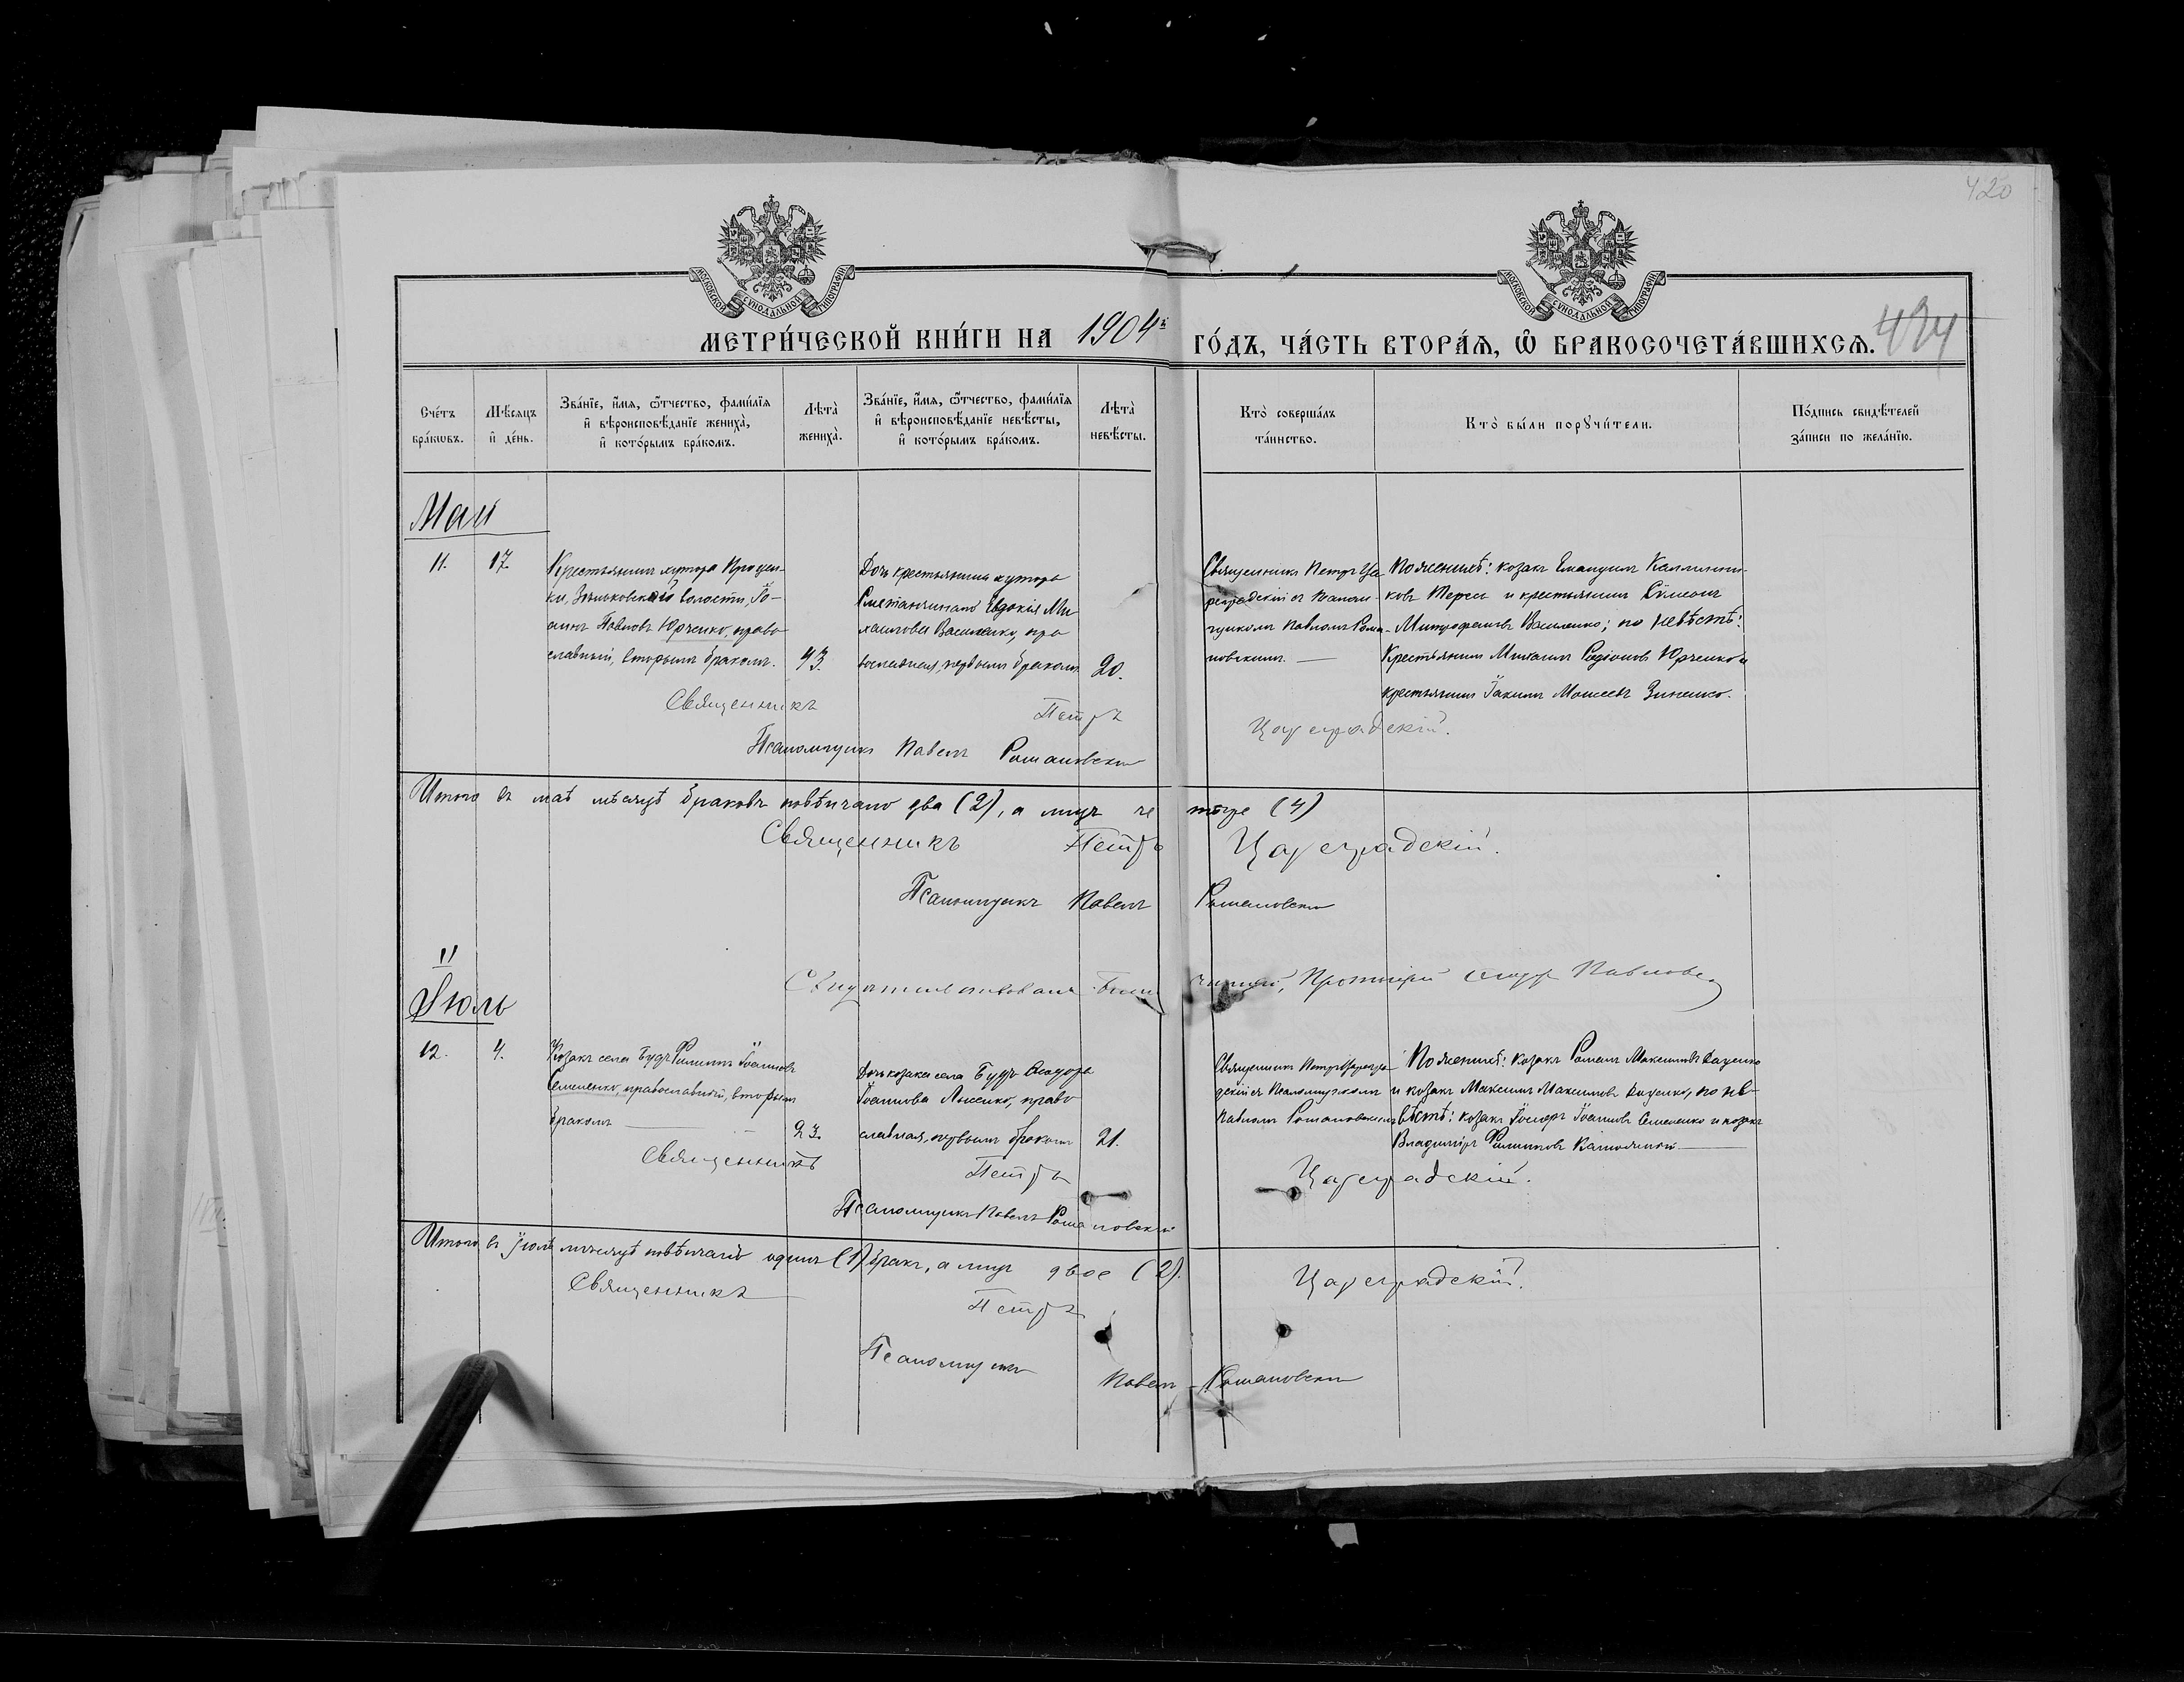 420
МОСКОВСКОЙ СѴНОДАЛЬНОЙ ТИПОГРАФІИ
МОСКОВСКОЙ СѴНОДАЛЬНОЙ ТИПОГРАФІИ
МЕТРИ́ЧЕСКОЙ КНИ́ГИ НА 1904й ГО́ДЪ, ЧА́СТЬ ВТОРА́Я, Ѡ҆ БРАКОСОЧЕТА́ВШИХСЯ.
Сче́тъ
бра́кѡвъ.
Мѣ́сяцъ
и҆ де́нь.
Зва́нїе, и҆́мя, ѻ҆́тчество, фами́лїя
и҆ вѣроисповѣ́данїе жениха̀,
и҆ кото́рымъ бра́комъ.
Лѣта̀
жениха̀.
Зва́нїе, и҆́мя, ѻ҆́тчество, фами́лїя
и҆ вѣроисповѣ́данїе невѣ́сты,
и҆ кото́рымъ бра́комъ.
Лѣта̀
невѣ́сты.
Кто̀ соверша́лъ
та́инство.
Кто̀ бы́ли порꙋчи́тели.
По́дпись свидѣ́телей
за́писи по жела́нїю.
Май
11. 17.
Крестьянинъ хутора Процен-
ки, Зѣньковской волости, Іо-
аннъ Павловъ Юрченко, право
славный, вторымъ бракомъ.
43.
Дочь крестьянина хутора
Евдокія Ми
хаилова Василенко, пра
вославная, первымъ бракомъ
20.
Священникъ Петръ Ца
реградскій съ Псалом-
щикомъ Павломъ Рома-
новскимъ.
По женихѣ: козакъ Каллини-
ковъ и крестьянинъ Сѷмеонъ
Митрофановъ Василенко; по невѣстѣ:
Крестьянинъ Михаилъ Родіоновъ Юрченко и
крестьянинъ Іакимъ Моисеевъ Зиненко.
Священникъ Петръ Цареградскій.
Псаломщикъ Павелъ Романовскій
Итого въ маѣ мѣсяцѣ браковъ повѣнчано два (2), а лицъ четверо (4)
Священникъ Петръ Цареградскій.
Псаломщикъ Павелъ Романовскій
Протоіерей Павловскій
Іюль
12. 4.
Козакъ села Будъ Филиппъ Іоанновъ
Семененко, православный, вторымъ
бракомъ
23.
Дочь козака села Будъ
Іоаннова Лысенко, право
славная, первымъ бракомъ
21.
Священникъ Петръ Цареград
скій съ Псаломщикомъ
Павломъ Романовскимъ
По женихѣ: козакъ Романъ Максимовъ Даценко
и козакъ Максимъ Максимовъ Даценко, по не-
вѣстѣ: козакъ Іосифъ Іоанновъ Семененко и козакъ
Владиміръ Филипповъ
Священникъ Петръ Цареградскій.
Псаломщикъ Павелъ Романовскій
Итого въ Іюлѣ мѣсяцѣ повѣнчанъ одинъ (1) бракъ, а лицъ двое (2).
Священникъ Петръ Цареградскій.
Псаломщикъ Павелъ Романовскій